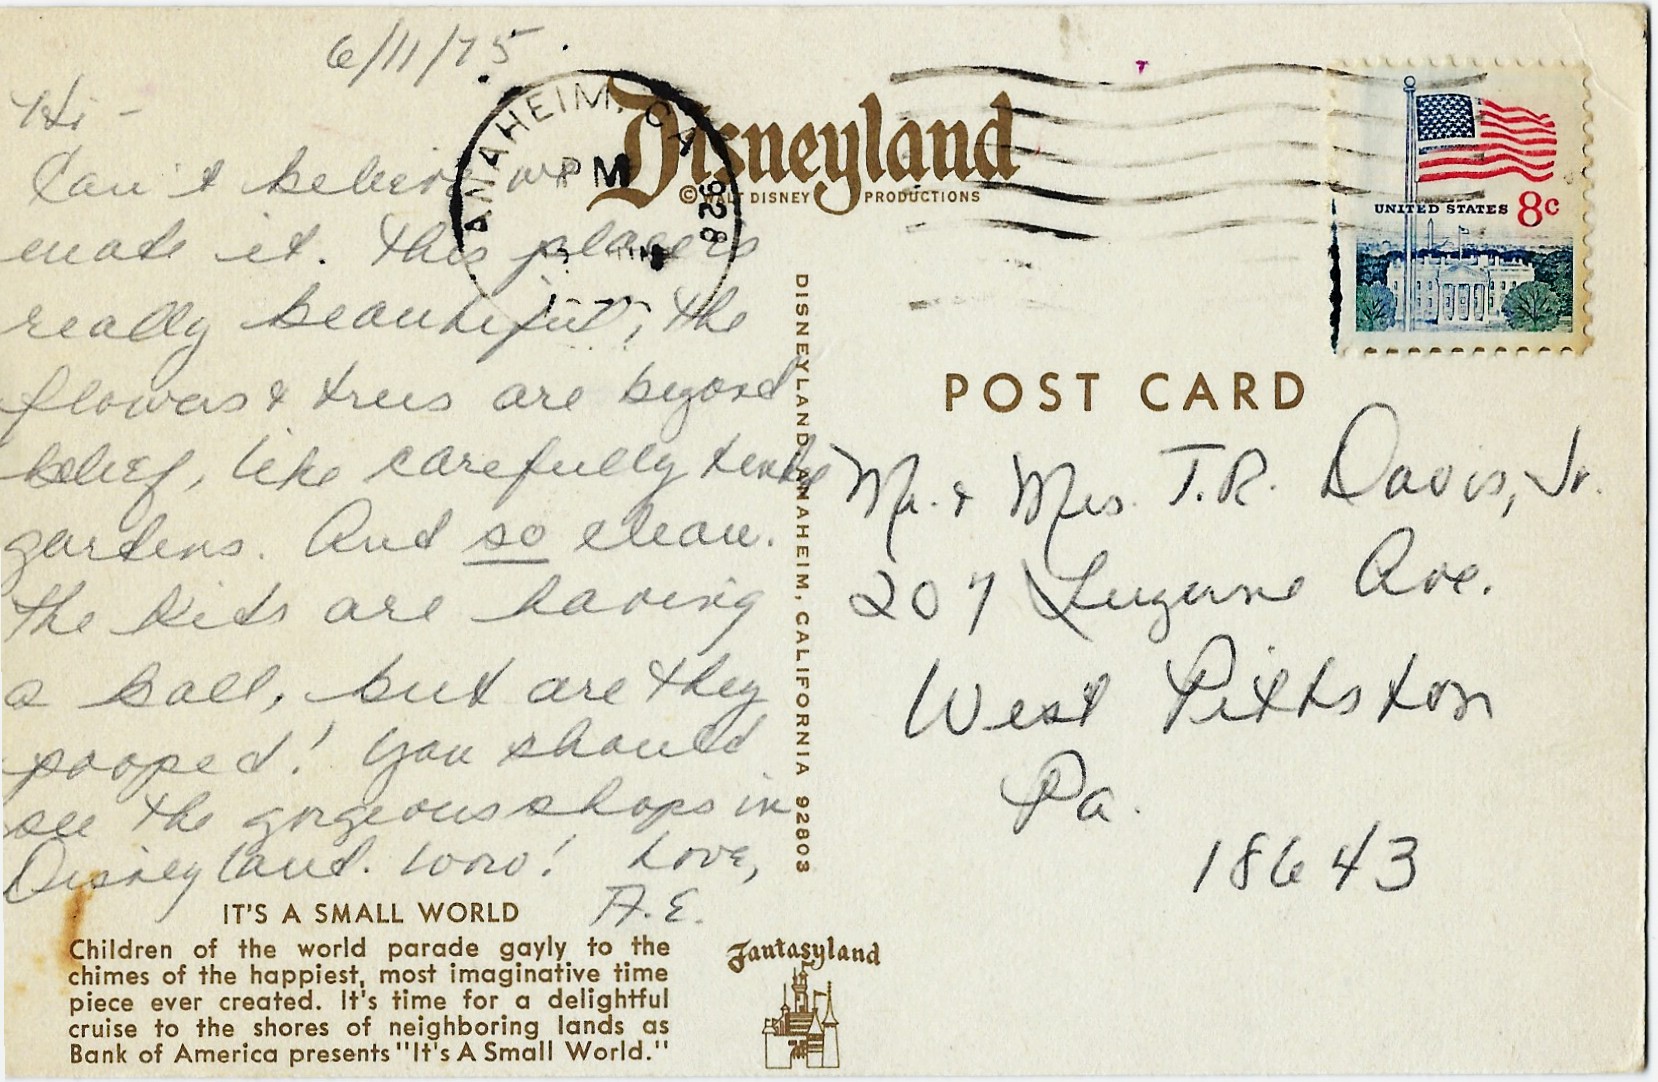 6/11/75
Hi -
Can't believe we
made it. This place is
really beautiful, the
flowers & trees are beyond
belief, like carefully tended
gardens. And so clean.
The kids are having
a ball, but are they
pooped! You should
see the gorgeous shops in
Disneyland. Wow! Love,
A.E.
IT'S A SMALL WORLD
Children of the world parade gayly to the
chimes of the happiest, most imaginative time
piece ever created. It's time for a delightful
cruise to the shores of neighboring lands as
Bank of America presents "It's A Small World."
Fantasyland
DISNEYLAND, ANAHEIM, CALIFORNIA 92803
ANAHEIM, CA 928
PM
Disneyland
© WALT DISNEY PRODUCTIONS
UNITED STATES 8c
POST CARD
Mr. & Mrs. T.R. Davis, Jr.
207 Luzerne Ave.
West Pittston
Pa.
18643